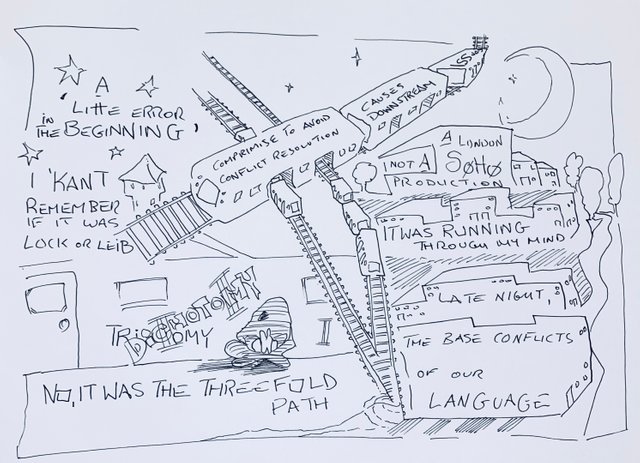 A
'LITTE ERROR
in THE BEGINNING'
I 'KANT
REMEMBER
IF IT WAS
LOCK OR LEIB
COMPRIMISE TO AVOID
CONFLICT RESOLUTION
CAUSES
DOWNSTREAM
A LONDON
NOT A SØHØ
PRODUCTION
IT WAS RUNNING
THROUGH MY MIND
LATE NIGHT,
THE BASE CONFLICTS
OF OUR
LANGUAGE
TRI
OMY
NO, IT WAS THE THREEFOLD
PATH